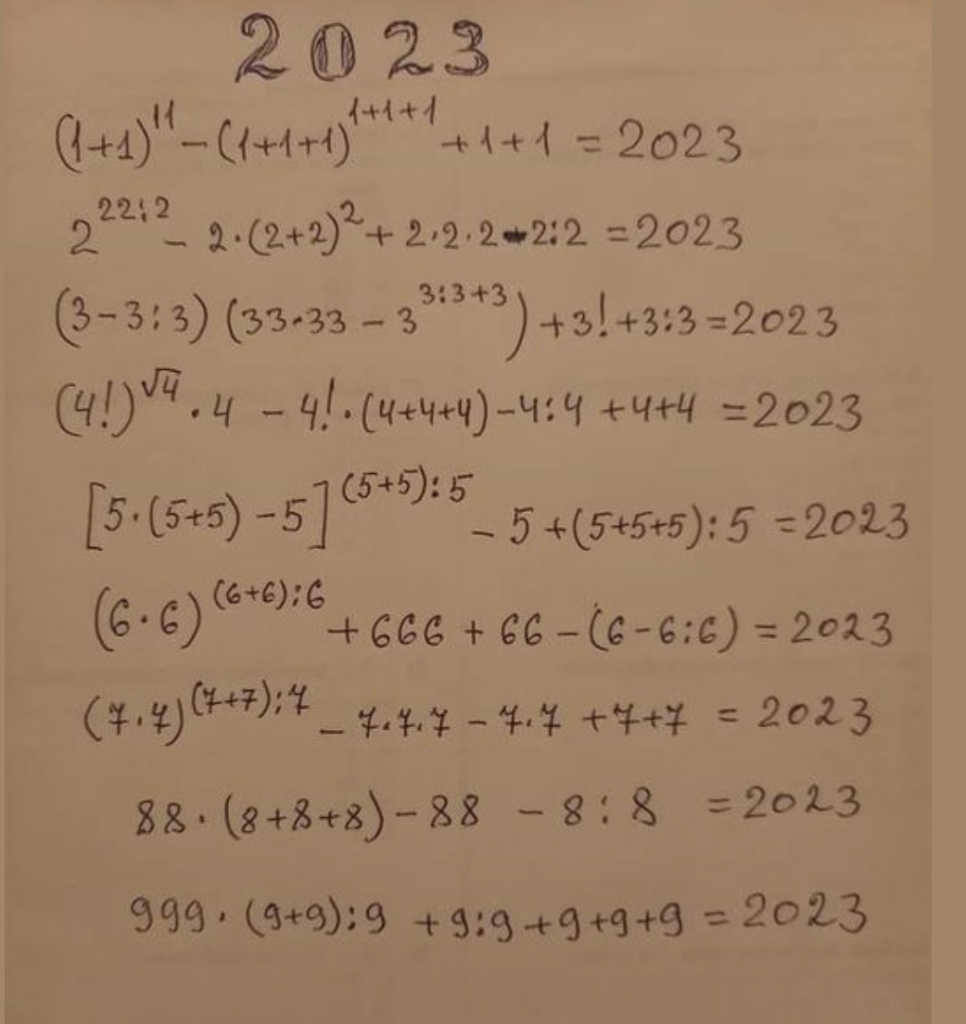 2023
(1+1)¹¹ - (1+1+1)¹⁺¹⁺¹ + 1 + 1 = 2023
2²²:² - 2·(2+2)² + 2·2·2 - 2:2 = 2023
(3-3:3) (33·33 - 3³:³⁺³) + 3! + 3:3 = 2023
(4!)^√4 · 4 - 4!·(4+4+4) - 4:4 + 4+4 = 2023
[5·(5+5) - 5]⁽⁵⁺⁵⁾:⁵ - 5 + (5+5+5):5 = 2023
(6·6)⁽⁶⁺⁶⁾:⁶ + 666 + 66 - (6-6:6) = 2023
(7·7)⁽⁷⁺⁷⁾:⁷ - 7·7·7 - 7·7 + 7+7 = 2023
88·(8+8+8) - 88 - 8:8 = 2023
999·(9+9):9 + 9:9 + 9+9+9 = 2023